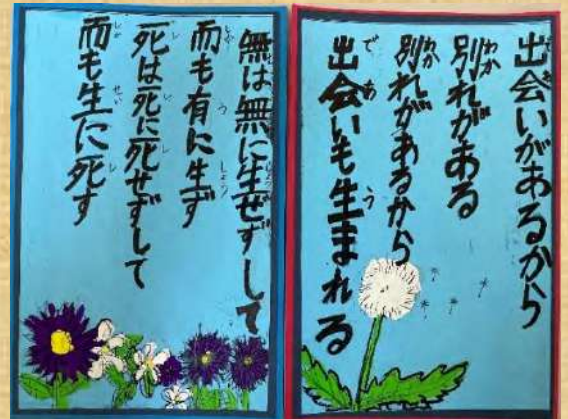 出会いがあるから
別れがある
別れがあるから
出会いも生まれる
無は無に生ぜずして
而も有に生ず
死は死に死せずして
而も生に死す